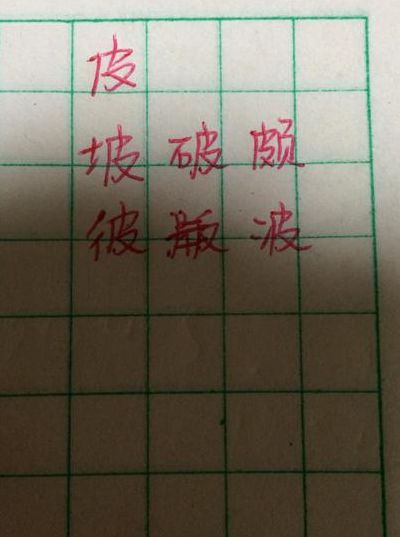 皮
坡 破 颇
彼 波